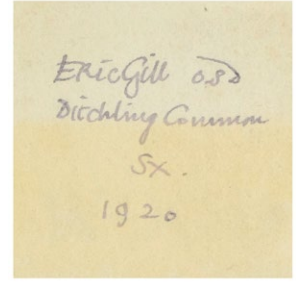 Eric Gill OSD
Ditchling Common
Sx.
1920